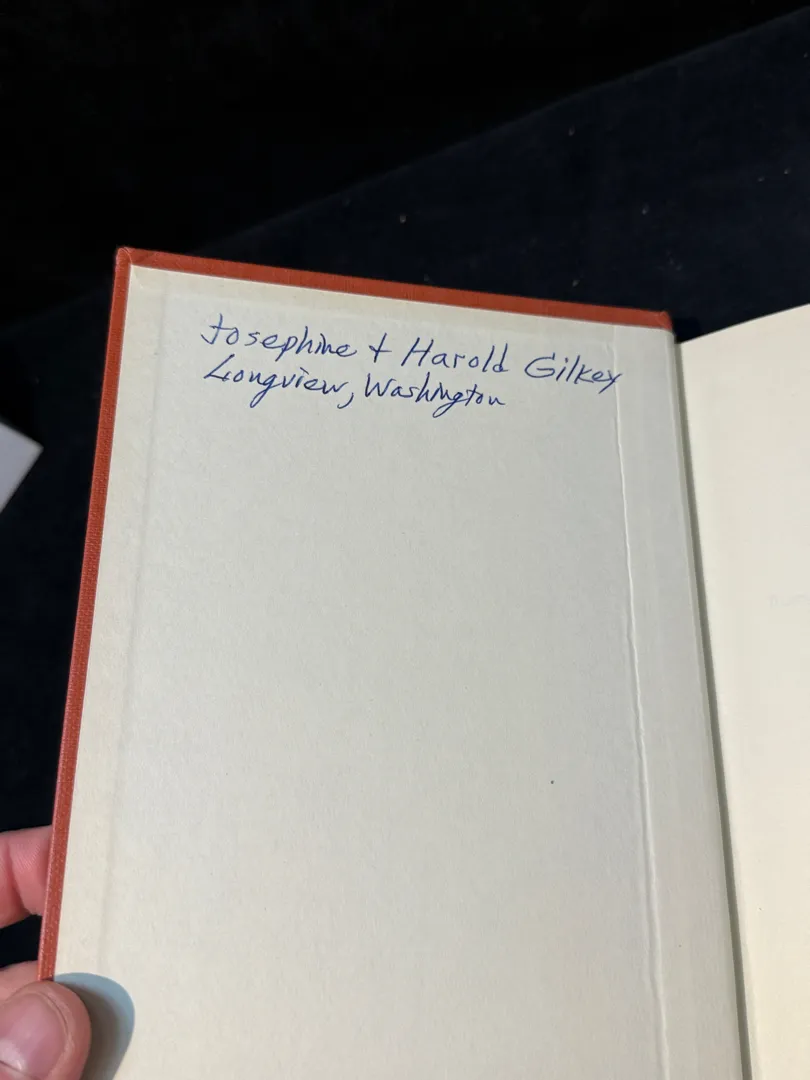 Josephine + Harold Gilkey
Longview, Washington